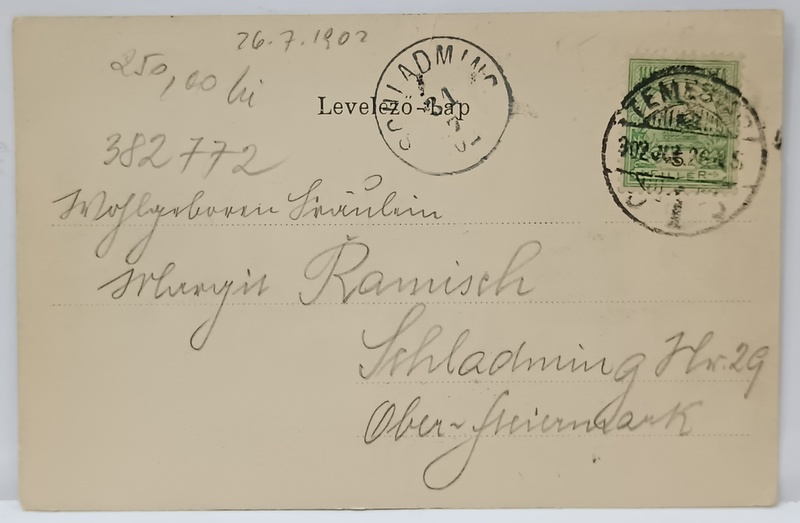 26.7.1902
250,00 lei
SCHLADMING
Levelező-Lap
TEMESVÁR
902 JUL 26
FILLER
382772
Wohlgeboren Fräulein
Margit Ramisch
Schladming Nr. 29
Ober-Steiermark